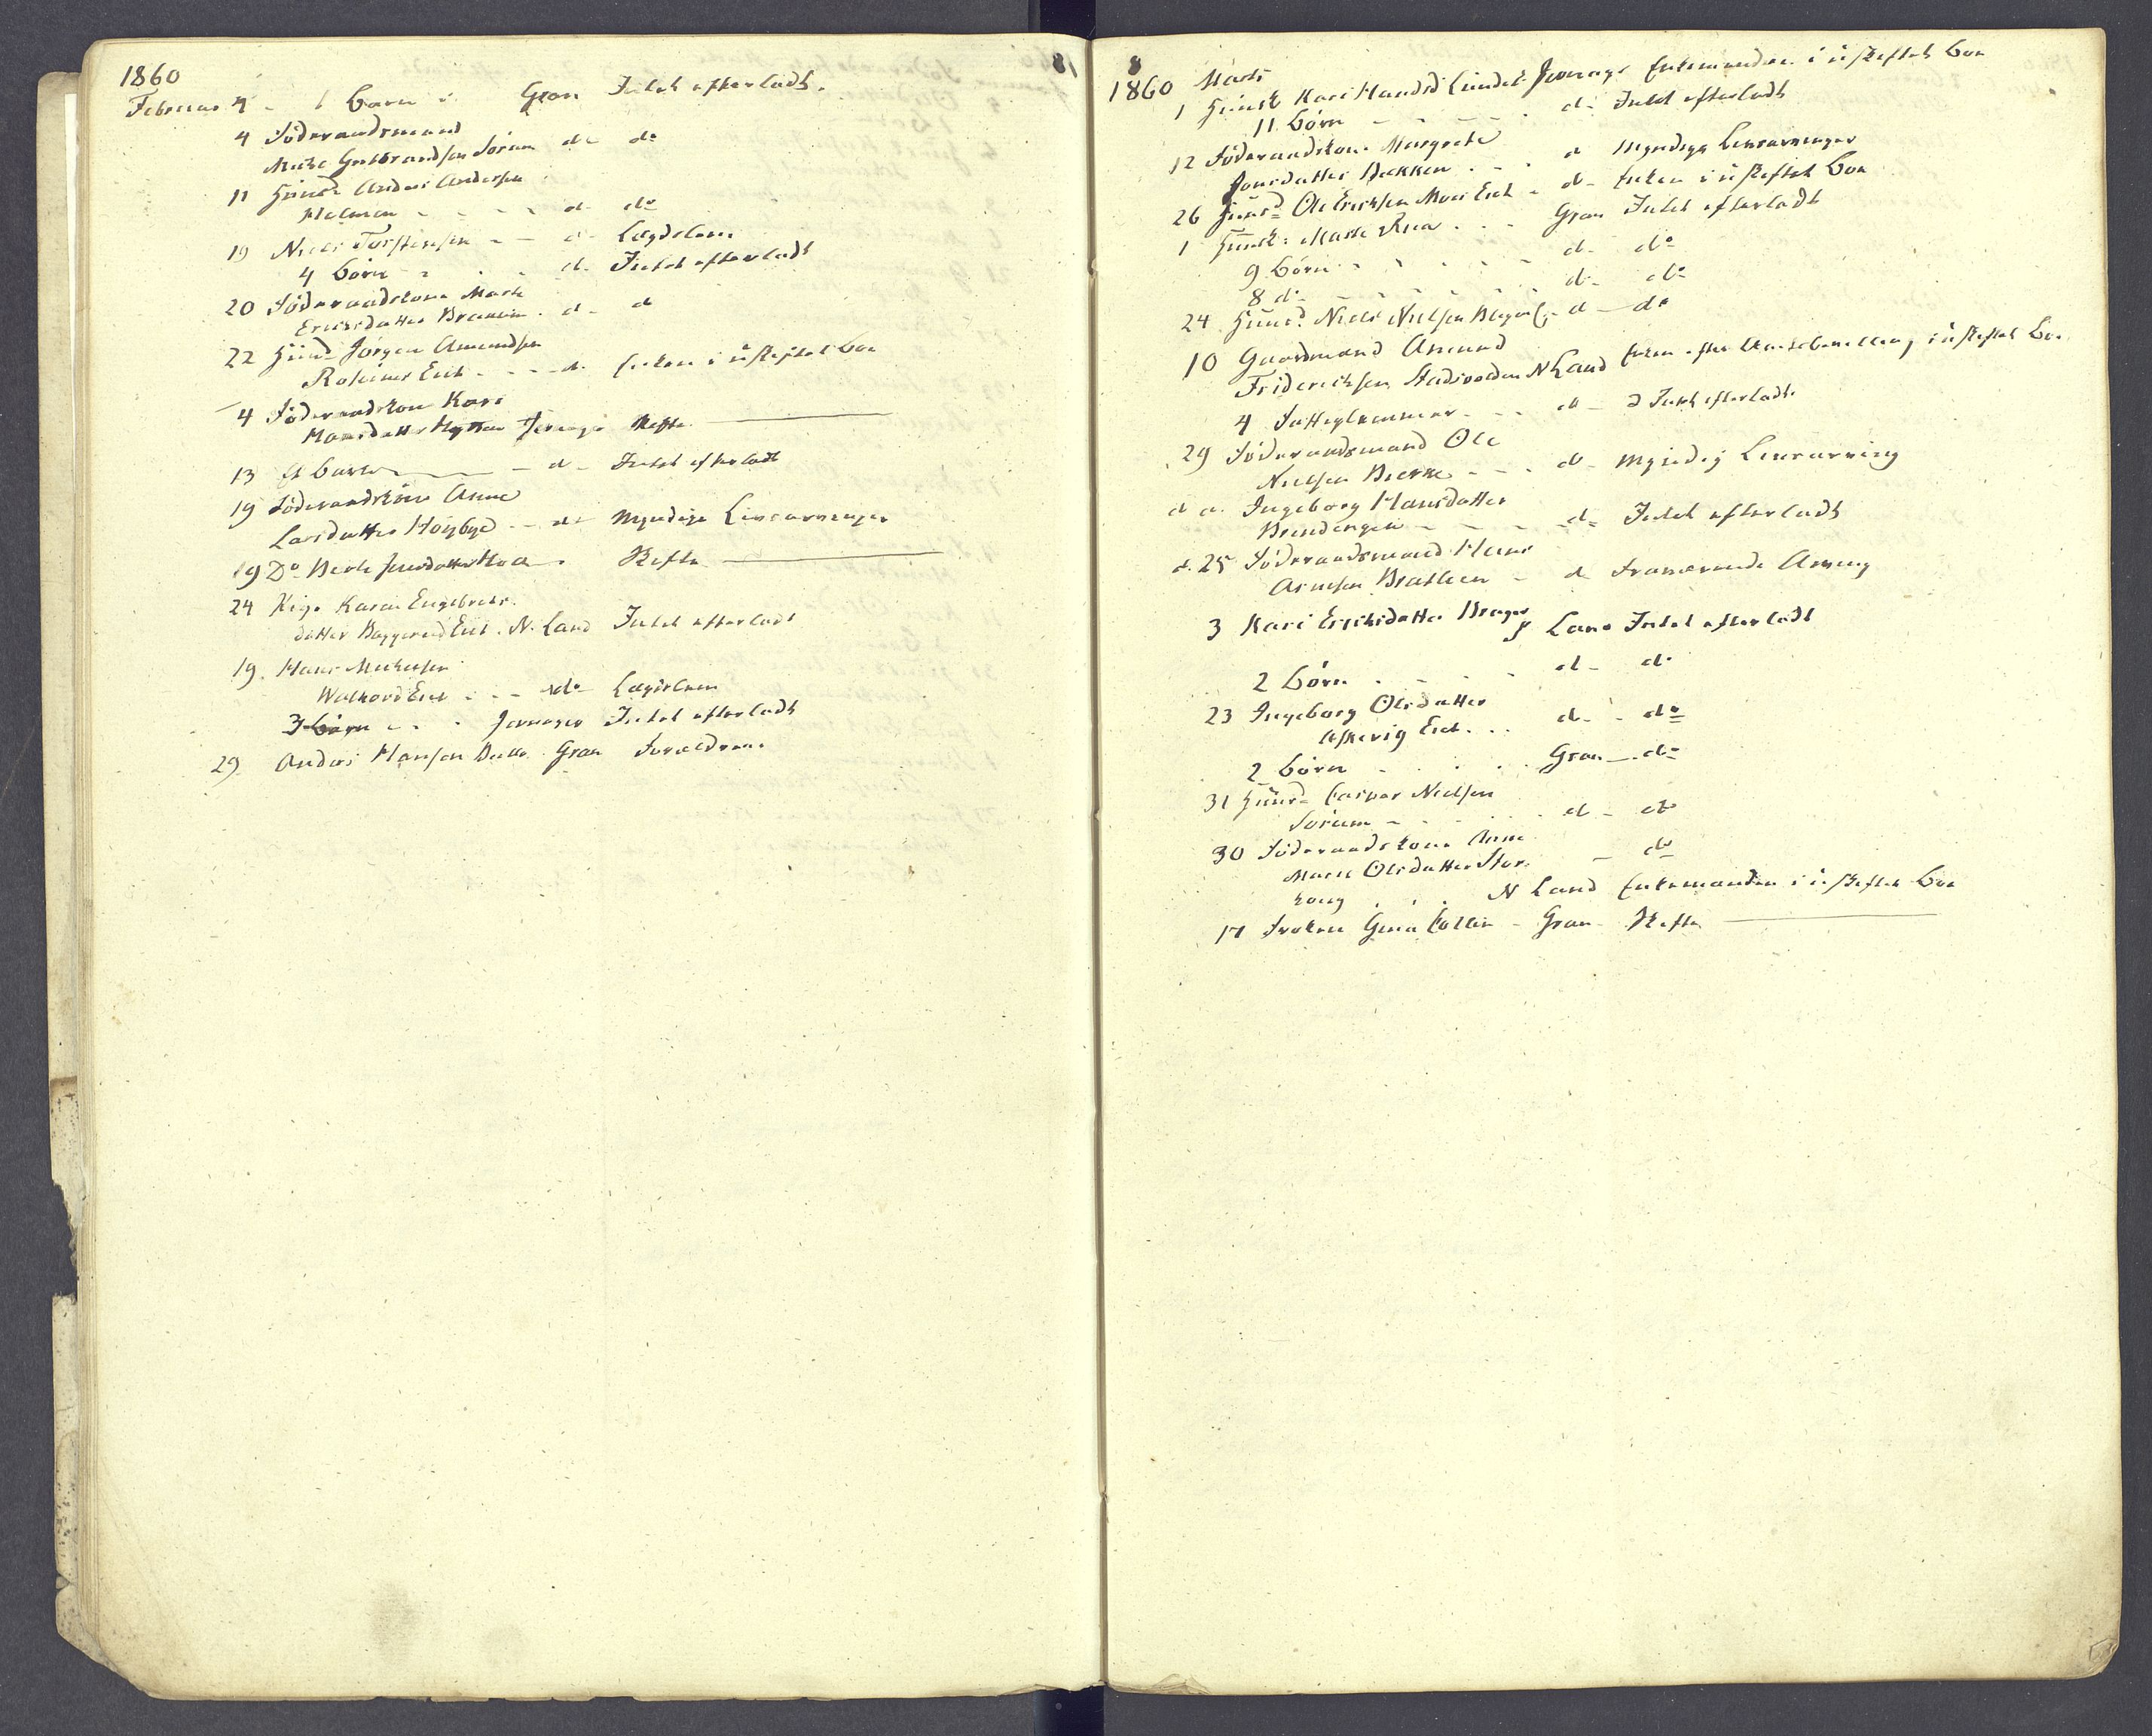 1860
Februar 4 - 1 Barn i Gran Intet efterladt.
4 Föderaadsmand
Gulbrandsen Sörum do do
11 Huusmd Anders Andersen
Melmen - - - - d- do
19 Niels Torstensen - - d- Lægdslem
4 Börn - - - d- Intet efterladt
20 Föderaadskone Marte
Erichsdatter - d- d
22 Huusmd Jörgen Amundsen
Eiet - - - d- Enken i uskiftet Boe
4 Föderaadskone Kari
Hansdatter Jevnager Skifte
13 Et Barn - d- Intet efterladt
19 Föderaadskone Anne
Larsdatter Höybye - - do Myndige Livsarvinger
19 Do Berthe - Skifte
24 Pige Karen Engebrets-
datter Eiet. N. Land Intet efterladt
19. Hans
Eiet - - - do Lægdslem
3 Börn - - - Jevnager Intet efterladt
29 Anders Hansen Gran Forældrene
8
8
1860 Marts
1 Huusk Kari Hansd Lundet Jevnager Enkemanden i uskiftet Boe
11 Börn - - - - - d- Intet efterladt
12 Föderaadskone Margrete
Jonsdatter Bækken . - . d Myndige Livsarvinger
26 Huusmd Ole Erichsen Moe Eiet - d- Enken i uskiftet Boe
1 Huusk: Marte - - - Gran Intet efterladt
9 Börn - - - - - d- do
8 d- - - - - - d- do
24 Huusmd Niels Nielsen d - do
10 Gaardmand Amund
Friderichsen N Land Enken efter Amtsbevilling i uskiftet Bo.
4 Fattiglemmer - - - d - d Intet efterladt.
29 Föderaadsmand Ole
Nielsen Bierke - - - d- Myndig Livsarving
d d. Ingeborg Hansdatter
- - - - d- Intet efterladt
d. 25 Föderaadsmand Hans
Arnesen Bratlien - d Fraværende Arving
3 Kari Erichsdatter
S Land Intet efterladt
2 Börn - - - - d- do
23 Ingeborg Olsdatter
Eiet. . . d- - do
2 Börn - - - - Gran - do
31 Huusmd Casper Nielsen
Sörum - - - - - d - do
30 Föderaadskone Anne
Marie Olsdatter - do
N Land Enkemanden i uskiftet Boe
17 Fröken Gina Collin - Gran - Skifte